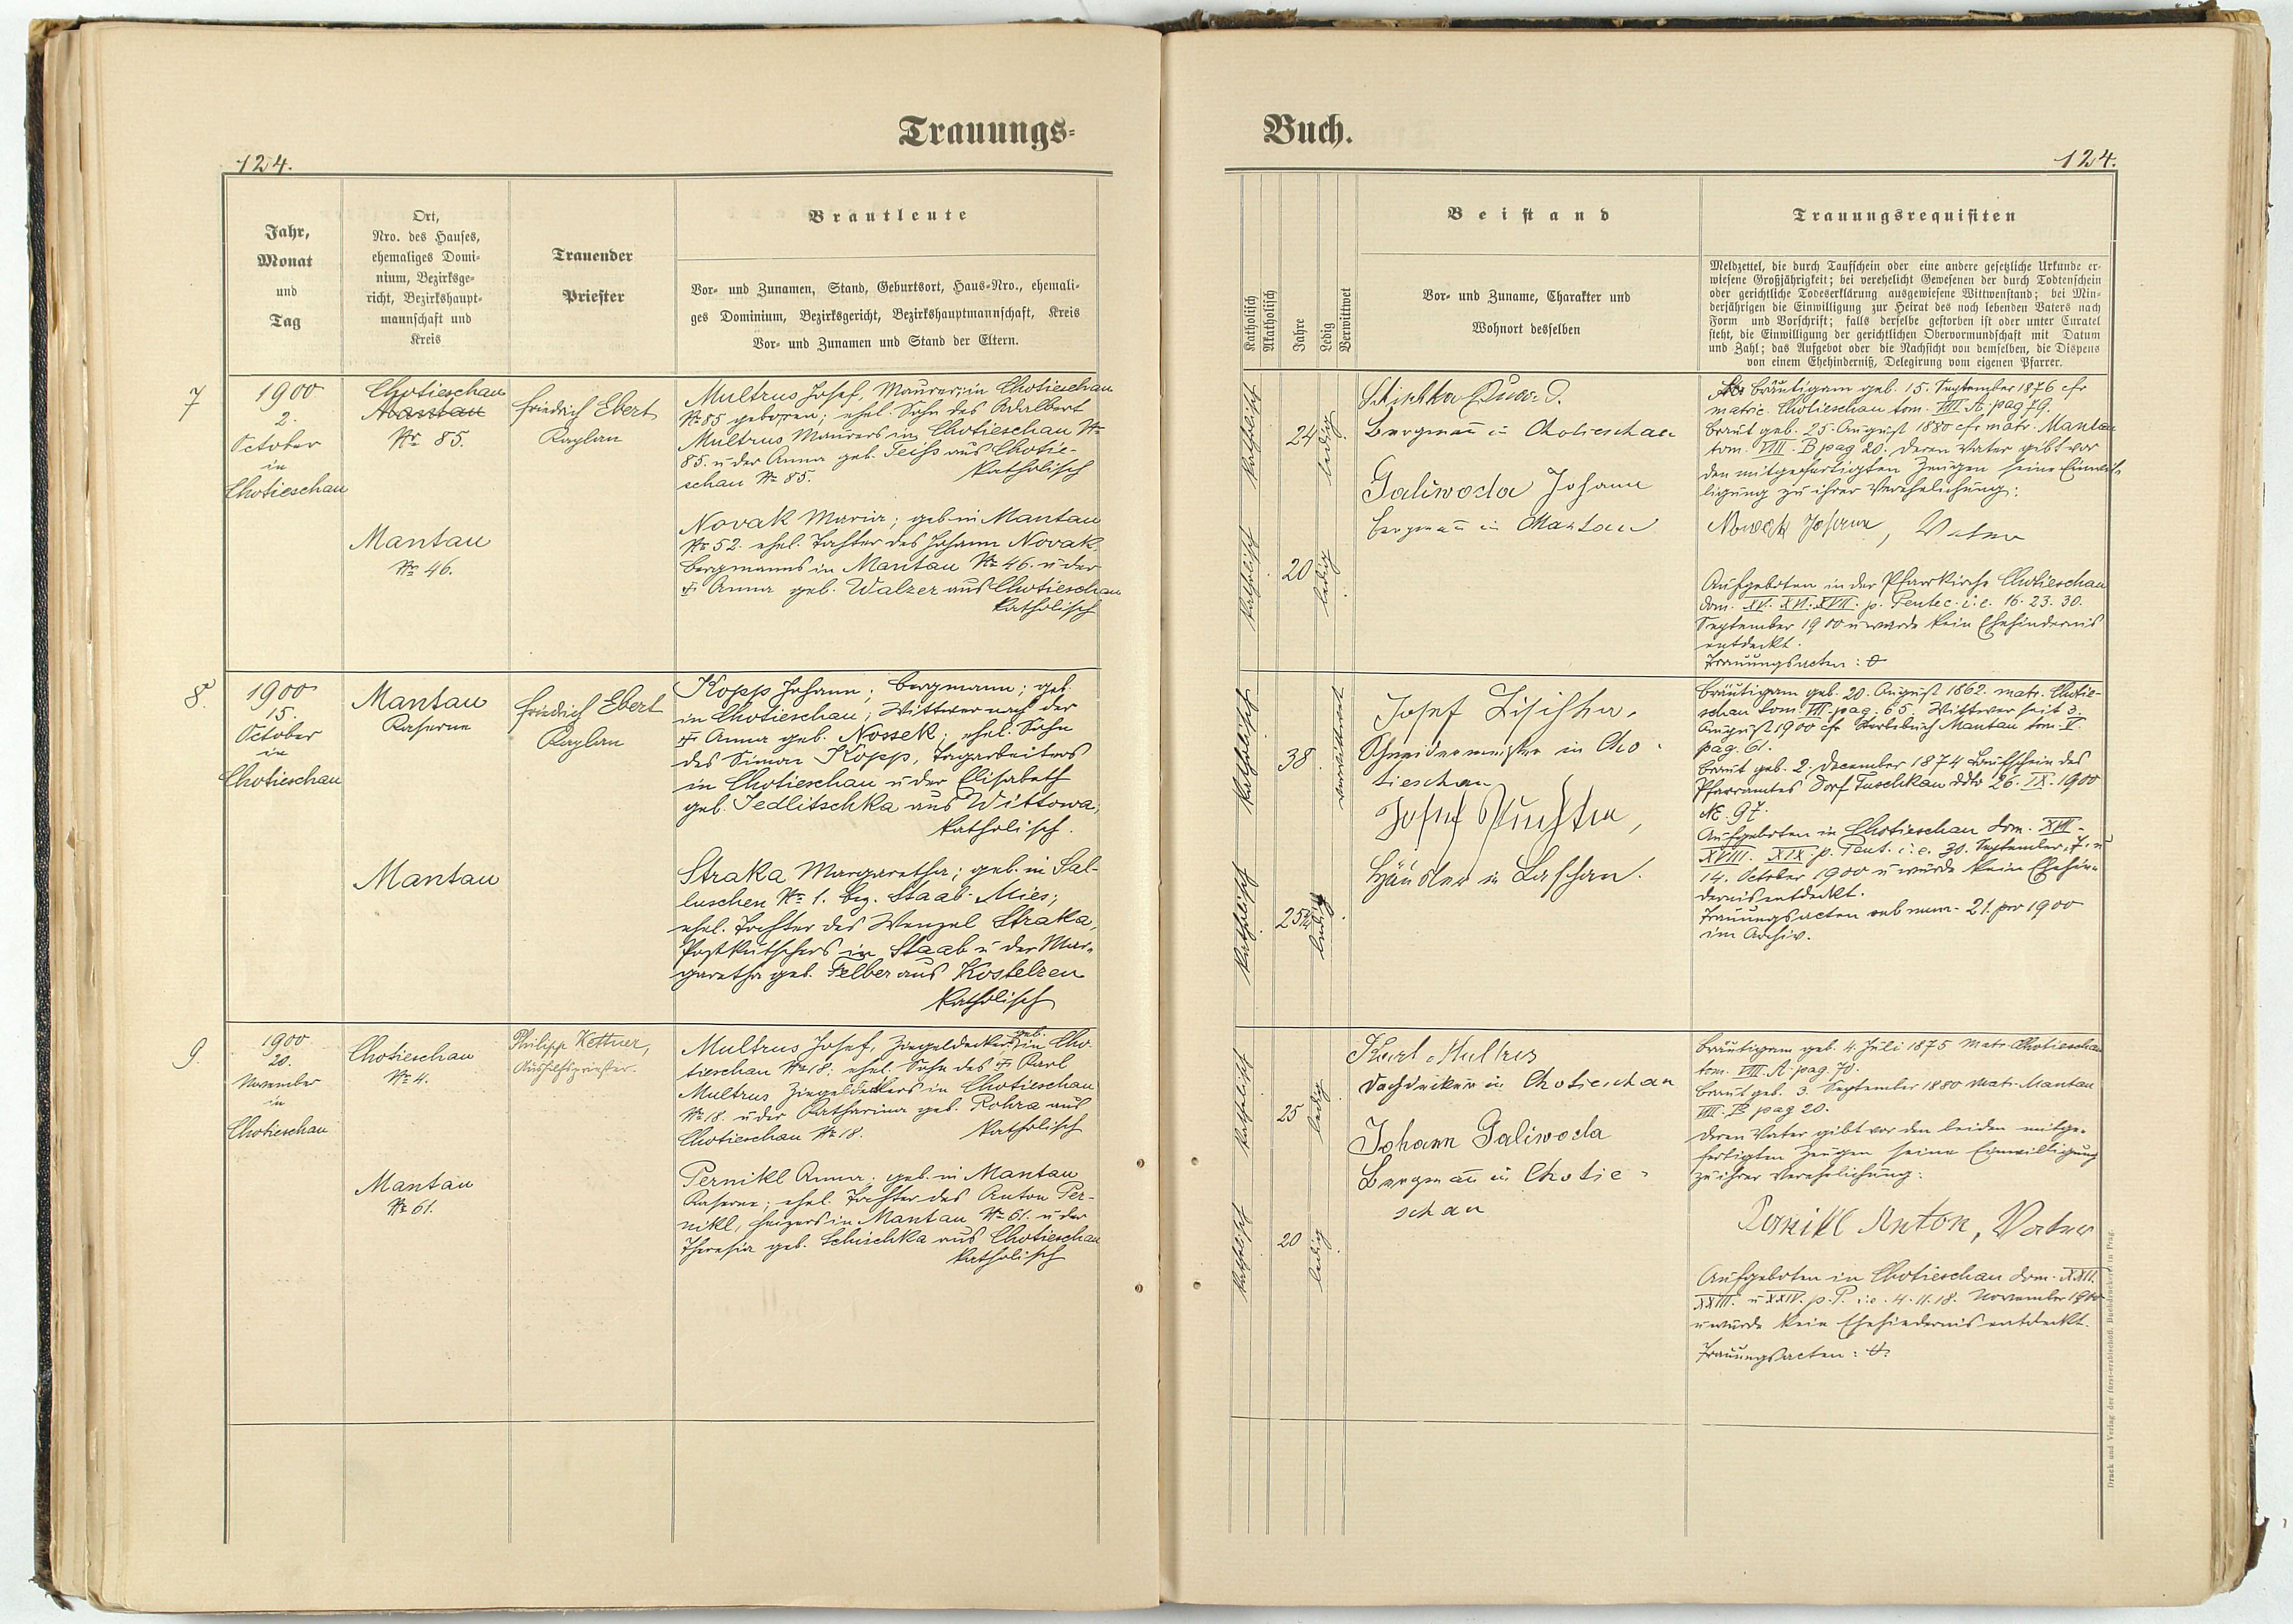 Trauungs-
124.
Jahr,
Monat
und
Tag
Ort,
Nro. des Hauses,
ehemaliges Domi-
nium, Bezirksge-
richt, Bezirkshaupt-
mannschaft und
Kreis
Trauender
Priester
Brautleute
Vor- und Zunamen, Stand, Geburtsort, Haus-Nro., ehemali-
ges Dominium, Bezirksgericht, Bezirkshauptmannschaft, Kreis
Vor- und Zunamen und Stand der Eltern.
7
1900
2.
October
in
Chotieschau
Chotieschau
Mantau
Nr 85.
Mantau
Nr 46.
Friedrich Ebert
Kaplan
Multrus Josef, Maurer; in Chotieschau
Nr 85 geboren; ehel. Sohn des Adalbert
Multrus Maurers in Chotieschau Nr
85. u der Anna geb. Teiss aus Chotie-
schau Nr 85. katholisch
Novak Maria; geb in Mantau
Nr 52. ehel. Tochter des Johann Novak,
Bergmanns in Mantau Nr 46. u der
† Anna geb. Walzer aus Chotieschau
katholisch
8.
1900
15.
October
in
Chotieschau
Mantau
Kaserne
Mantau
Friedrich Ebert
Kaplan
Kopp Johann; Bergmann; geb.
in Chotieschau; Wittwer nach der
† Anna geb. Nossek; ehel. Sohn
des Simon Kopp, Tagarbeiters
in Chotieschau u der Elisabeth
geb. Sedlitschka aus Wittowa,
katholisch.
Straka Margaretha; geb. in Sal-
luschen Nr 1. Bez. Staab-Mies;
ehel. Tochter des Wenzel Straka,
Postkutschers in Staab u der Mar-
garetha geb. Felber aus Kostelzen
katholisch
9
1900
20.
November
in
Chotieschau
Chotieschau
Nr 4.
Mantau
Nr 61.
Philipp Kettner,
Aushilfspriester.
Multrus Josef, Ziegeldecker; geb. in Cho-
tieschau Nr 18; ehel. Sohn des † Karl
Multrus Ziegeldeckers in Chotieschau
Nr 18. u der Katharina geb. Rohra aus
Chotieschau Nr 18. katholisch
Pernikl Anna; geb. in Mantau
Kaserne; ehel. Tochter des Anton Per-
nikl, Heizers in Mantau Nr 61. u der
Theresia geb. Schischka aus Chotieschau
katholisch
Buch.
124.
Katholisch
Akatholisch
Jahre
Ledig
Verwittwet
Beistand
Vor- und Zuname, Charakter und
Wohnort desselben
Trauungsrequisiten
Meldzettel, die durch Taufschein oder eine andere gesetzliche Urkunde er-
wiesene Großjährigkeit; bei verehelicht Gewesenen der durch Todtenschein
oder gerichtliche Todeserklärung ausgewiesene Wittwenstand; bei Min-
derjährigen die Einwilligung zur Heirat des noch lebenden Vaters nach
Form und Vorschrift; falls derselbe gestorben ist oder unter Curatel
steht, die Einwilligung der gerichtlichen Obervormundschaft mit Datum
und Zahl; das Aufgebot oder die Nachsicht von demselben, die Dispens
von einem Ehehinderniß, Delegirung vom eigenen Pfarrer.
katholisch
24
ledig
katholisch
20
ledig
Bergmann in Chotieschau
Galiwoda Johann
Bergmann in Mantau
Bräutigam geb. 15. September 1876 cfr
matric. Chotieschau tom. VIII. A. pag 79.
Braut geb. 25. August 1880 cfr matr. Mantau
tom. VIII. B pag 20. deren Vater gibt vor
den mitgefertigten Zeugen seine Einwil-
ligung zu ihrer Verehelichung:
Nowak Johann, Vater
Aufgeboten in der Pfarrkirche Chotieschau
dom. XV. XVI. XVII. p. Pentec. i. e. 16. 23. 30.
September 1900 u wurde kein Ehehindernis
entdeckt.
Trauungsacten: 0
katholisch
38
verwittwet
katholisch
25
ledig
Josef
Schneidermeister in Cho-
tieschau
Josef
Häusler in
Bräutigam geb. 20. August 1862. matr. Chotie-
schau tom. VII. pag. 65. Wittwer seit 3.
August 1900 cfr Sterbebuch Mantau tom. V.
pag. 61.
Braut geb. 2. December 1874 Taufschein des
Pfarramtes Dorf Tuschkau ddto 26. IX. 1900
No. 97.
Aufgeboten in Chotieschau dom. XVII.
XVIII. XIX. p. Pent. i. e. 30. September, 7. u
14. October 1900 u wurde kein Ehehin-
dernis entdeckt.
Trauungsacten sub num. 21. pro 1900
im Archiv.
katholisch
25
ledig
katholisch
20
ledig
Karl Multrus
Dachdecker in Chotieschau
Johann Galiwoda
Bergmann in Chotie-
schau
Bräutigam geb. 4. Juli 1875 matr. Chotieschau
tom. VIII. A. pag. 70.
Braut geb. 3. September 1880 matr. Mantau
VIII. B pag 20.
deren Vater gibt vor den beiden mitge-
fertigten Zeugen seine Einwilligung
zu ihrer Verehelichung:
Pernikl Anton, Vater
Aufgeboten in Chotieschau dom. XXII.
XXIII. u XXIV. p. P. i. e. 4. 11. 18. November 1900
u wurde kein Ehehindernis entdeckt.
Trauungsacten: 0.
Druck und Verlag der fürst-erzbischöfl. Buchdruckerei in Prag.